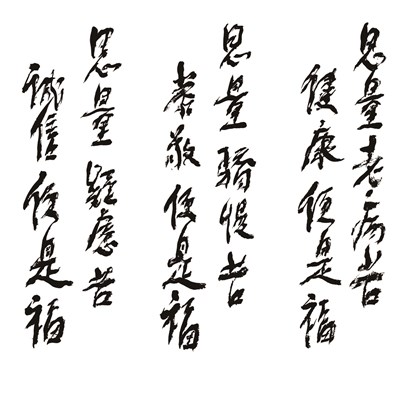 思量老病苦
健康便是福
思量骄慢苦
恭敬便是福
思量疑虑苦
诚信便是福